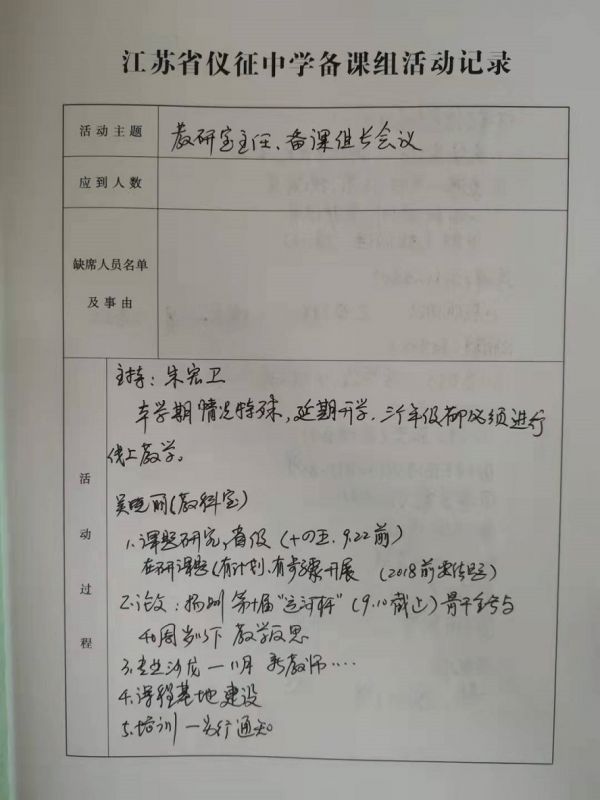 江苏省仪征中学备课组活动记录
活动主题
教研室主任、备课组长会议
应到人数
缺席人员名单
及事由
活动过程
主持：朱宏卫
本学期情况特殊，延期开学，三个年级都必须进行
线上教学。
吴晓丽（教科室）
1.课题研究，省级（十四五，9.22前）
在研课题（有计划、有步骤开展（2018前要结题）
2.论文：扬州第十届“运河杯”（9.10截止）骨干参与
40周岁以下 教学反思
3.专业沙龙—11月 新教师····
4.课程基地建设
5.培训—另行通知